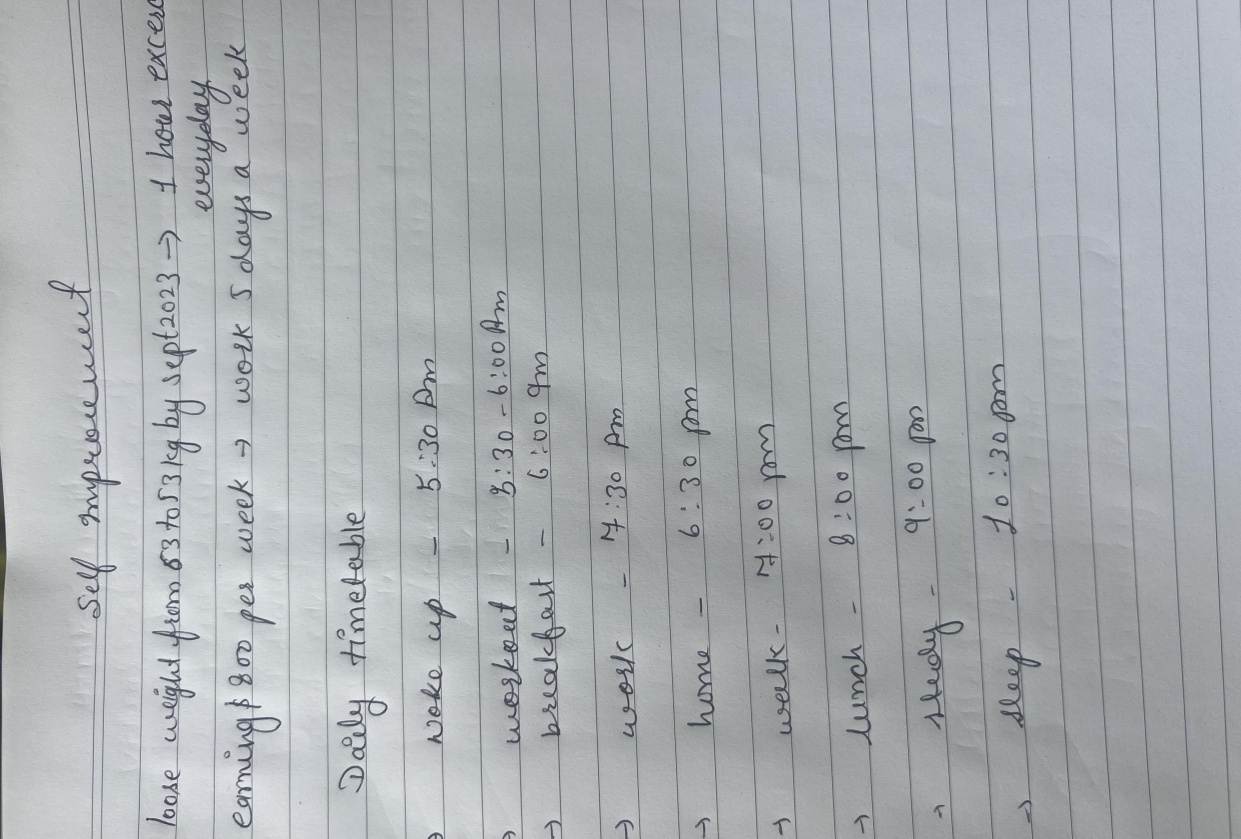 Self Improvement
loose weight from 63 to 53 kg by sept 2023 → 1 hour excerc
everyday
earning $ 800 per week → work 5 days a week
Daily timetable
→ woke up - 5:30 Am
→ workout - 5:30 - 6:00 Am
→ breakfast - 6:00 am
→ work - 7:30 Am
→ home - 6:30 pm
→ walk - 7:00 pm
→ lunch - 8:00 pm
→ study - 9:00 pm
→ sleep - 10:30 pm